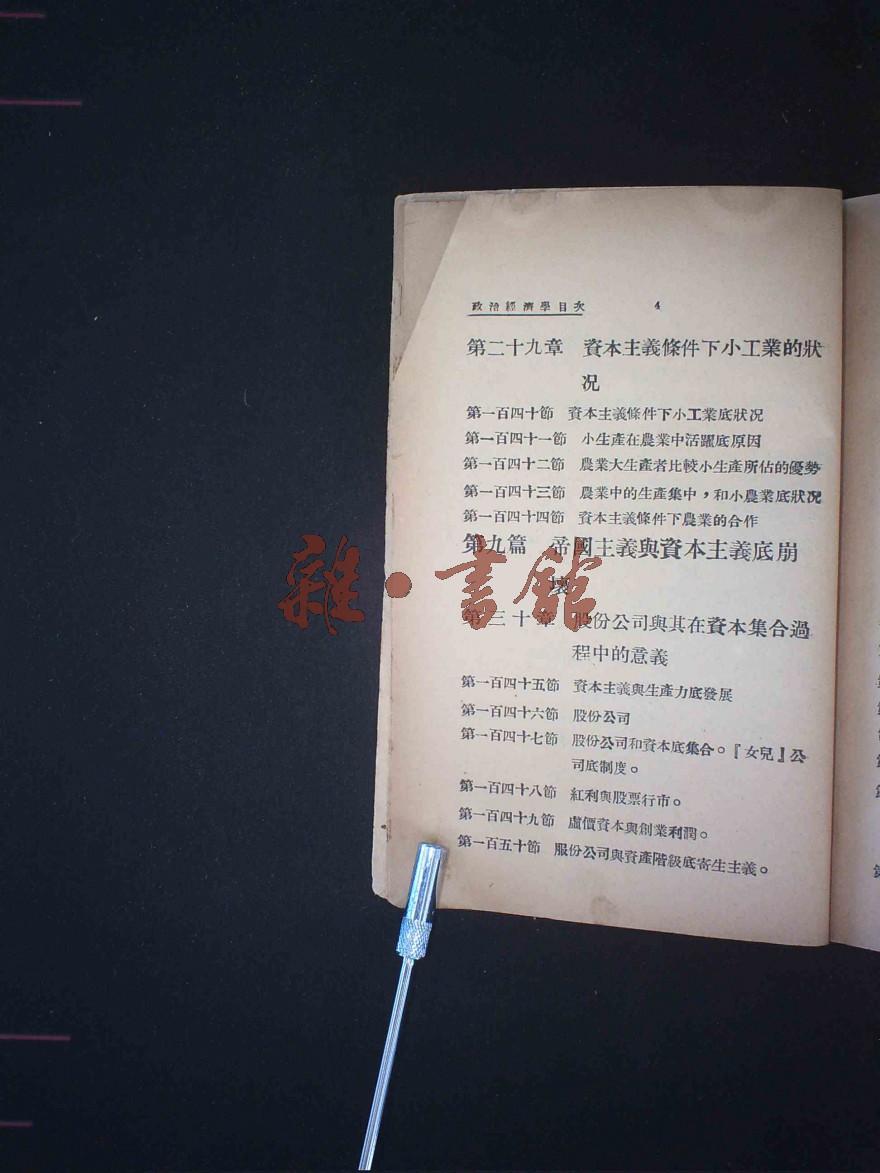 政治經濟學目次 4
第二十九章 資本主義條件下小工業的狀
况
第一百四十節 資本主義條件下小工業底狀况
第一百四十一節 小生產在農業中活躍底原因
第一百四十二節 農業大生產者比較小生產所佔的優勢
第一百四十三節 農業中的生產集中，和小農業底狀况
第一百四十四節 資本主義條件下農業的合作
第九篇 帝國主義與資本主義底崩
壞
第三十章 股份公司與其在資本集合過
程中的意義
第一百四十五節 資本主義與生產力底發展
第一百四十六節 股份公司
第一百四十七節 股份公司和資本底集合。『女兒』公
司底制度。
第一百四十八節 紅利與股票行市。
第一百四十九節 虛價資本與創業利潤。
第一百五十節 股份公司與資產階級底寄生主義。
雜·書館